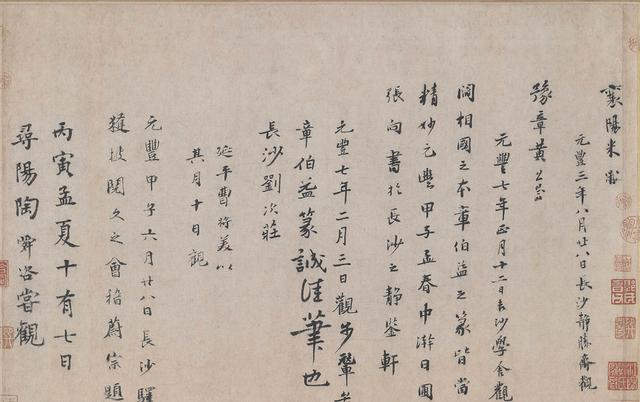 襄陽米黻
元豐三年八月廿八日長沙靜勝齋觀
豫章黃
元豐七年正月十二日長沙學舍觀
閻相國之本章伯益之篆皆當
精妙元豐甲子孟春中澣日圃
張向書於長沙之靜鉴軒
元豐七年二月三日觀步輦
章伯益篆誠佳筆也
長沙劉次莊
延平曹將美以
其月十日觀
元豐甲子六月廿八日長沙驛
獲披閱久之會稽蔚宗題
丙寅孟夏十有七日
尋陽陶舜咨嘗觀